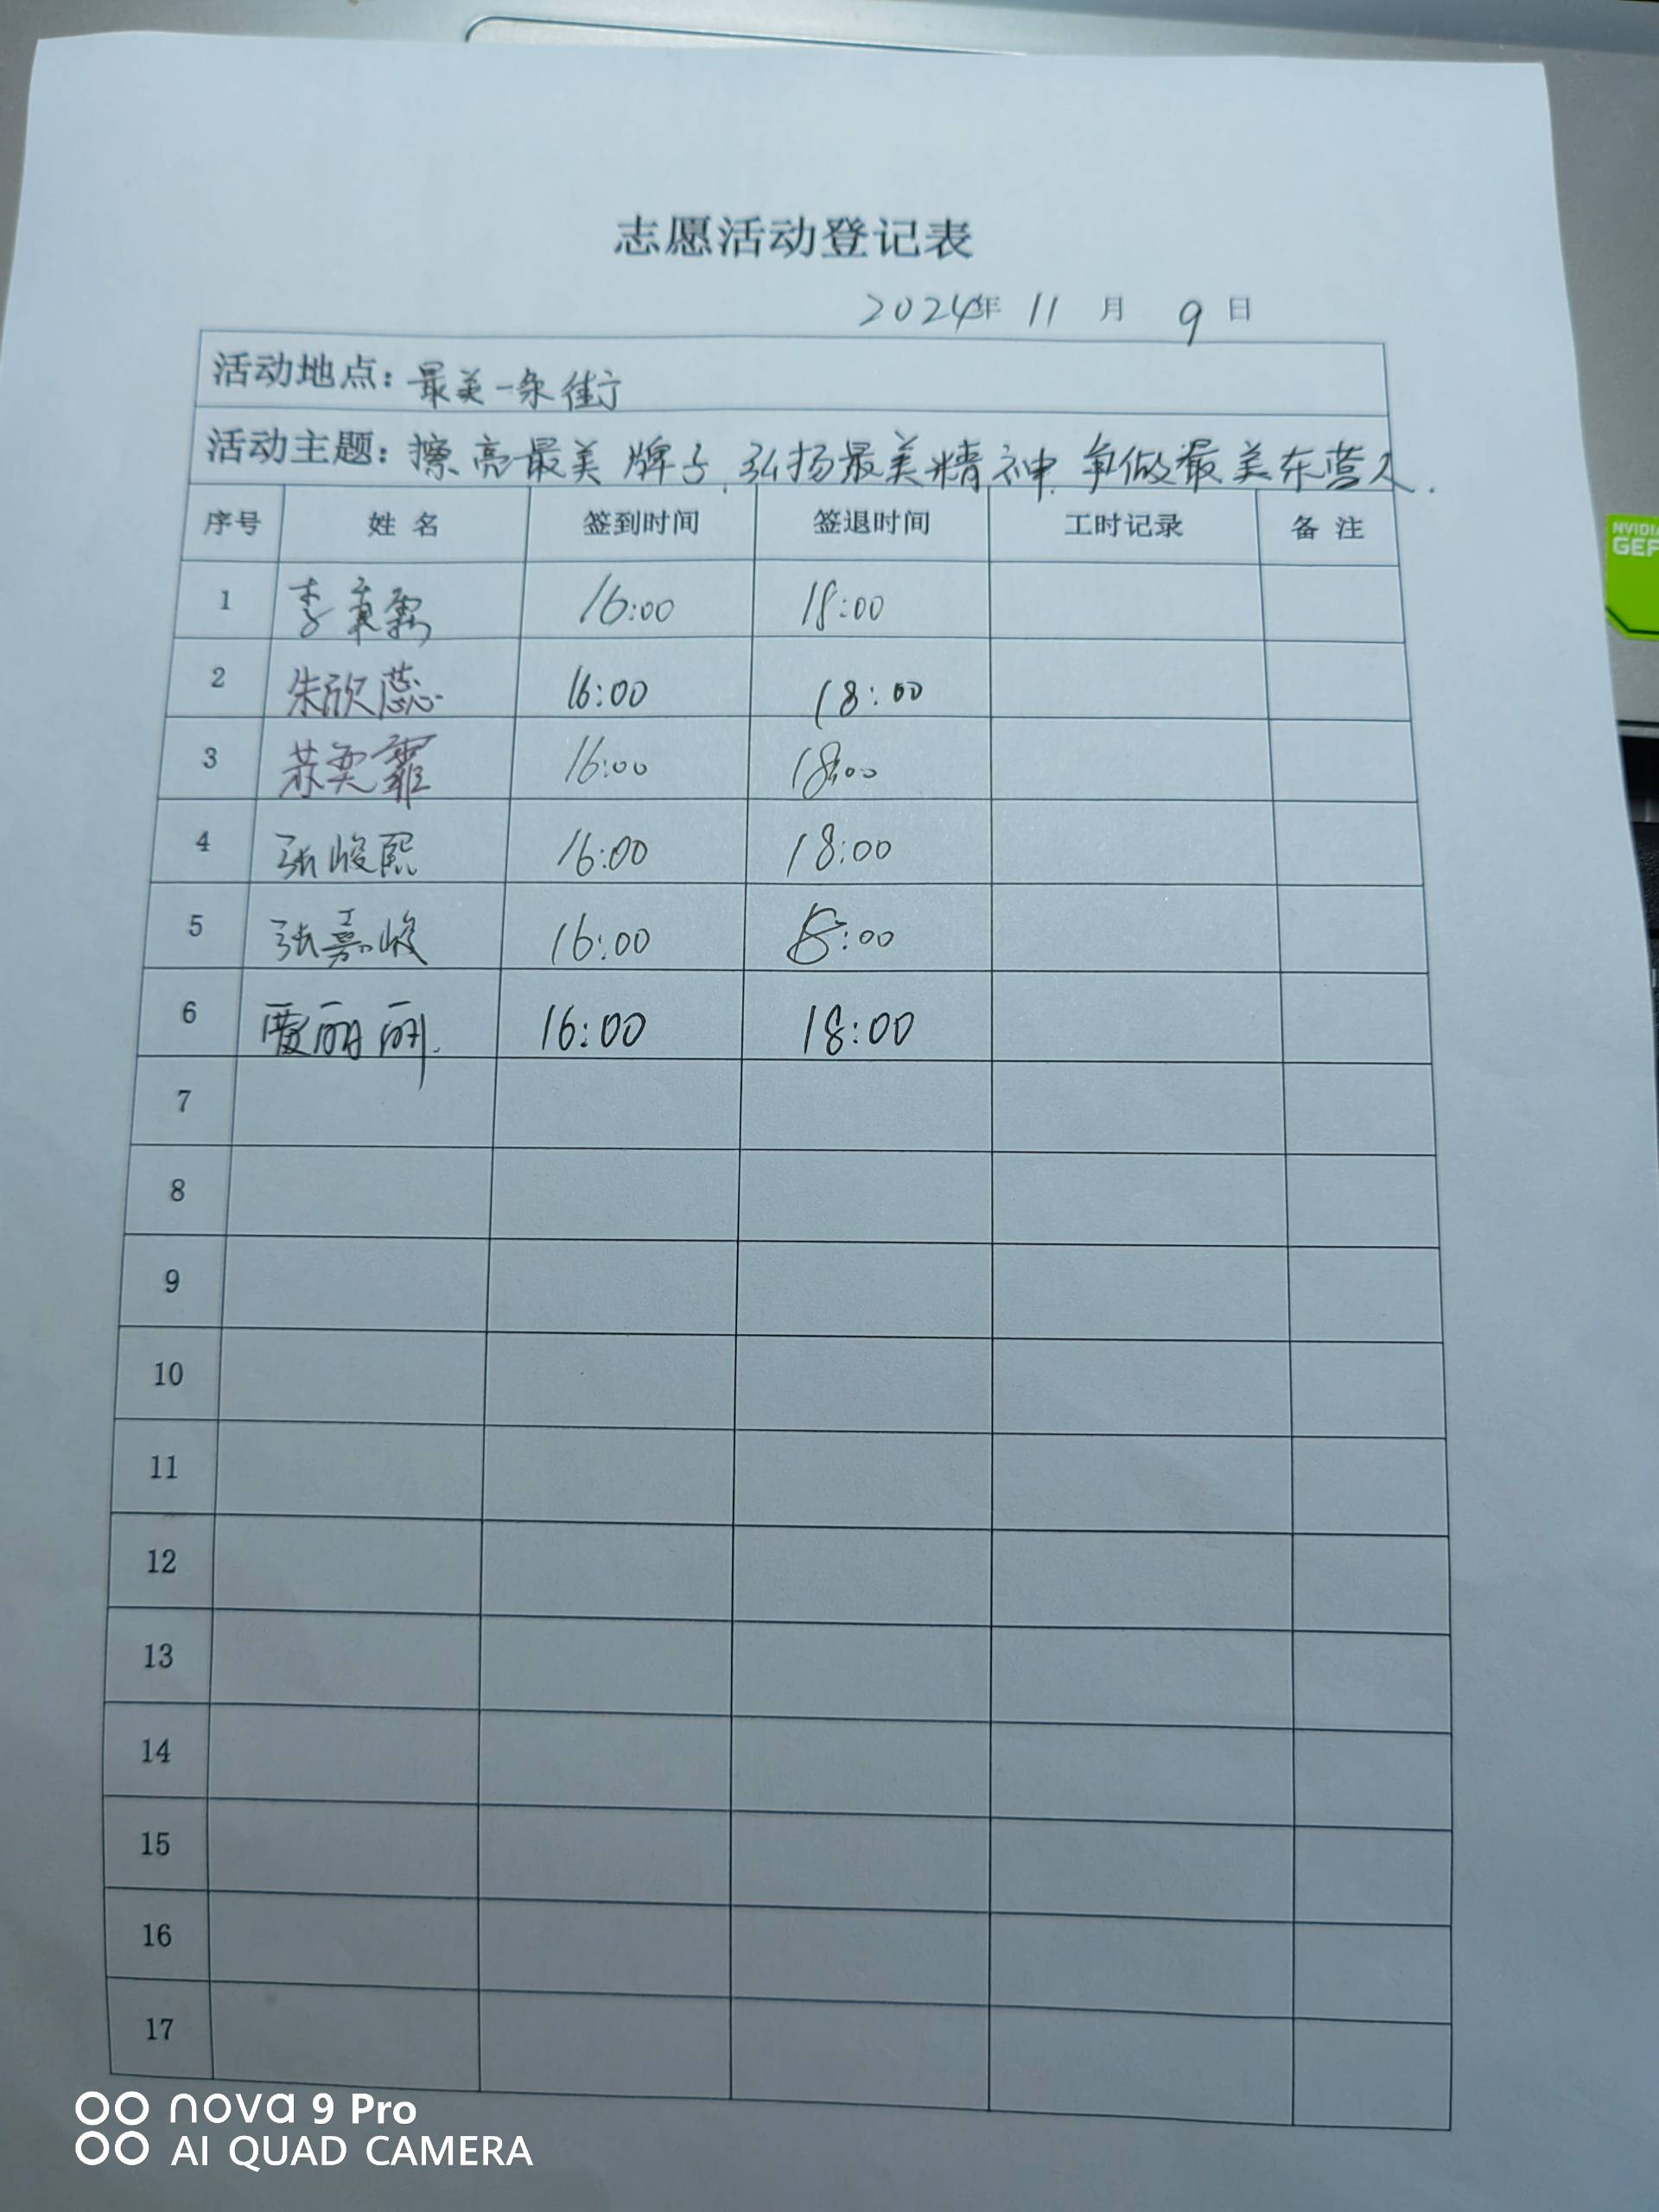 志愿活动登记表
2024年 11 月 9 日
活动地点：最美一条街
活动主题：擦亮最美牌子、弘扬最美精神、争做最美东营人.
序号 姓 名 签到时间 签退时间 工时记录 备 注
1 李 16:00 18:00
2 朱欣蕊 16:00 18:00
3 苏奕霏 16:00 18:00
4 张峻熙 16:00 18:00
5 张嘉峻 16:00 18:00
6 丽丽. 16:00 18:00
7
8
9
10
11
12
13
14
15
16
17
NVIDIA
GEF
nova 9 Pro
AI QUAD CAMERA